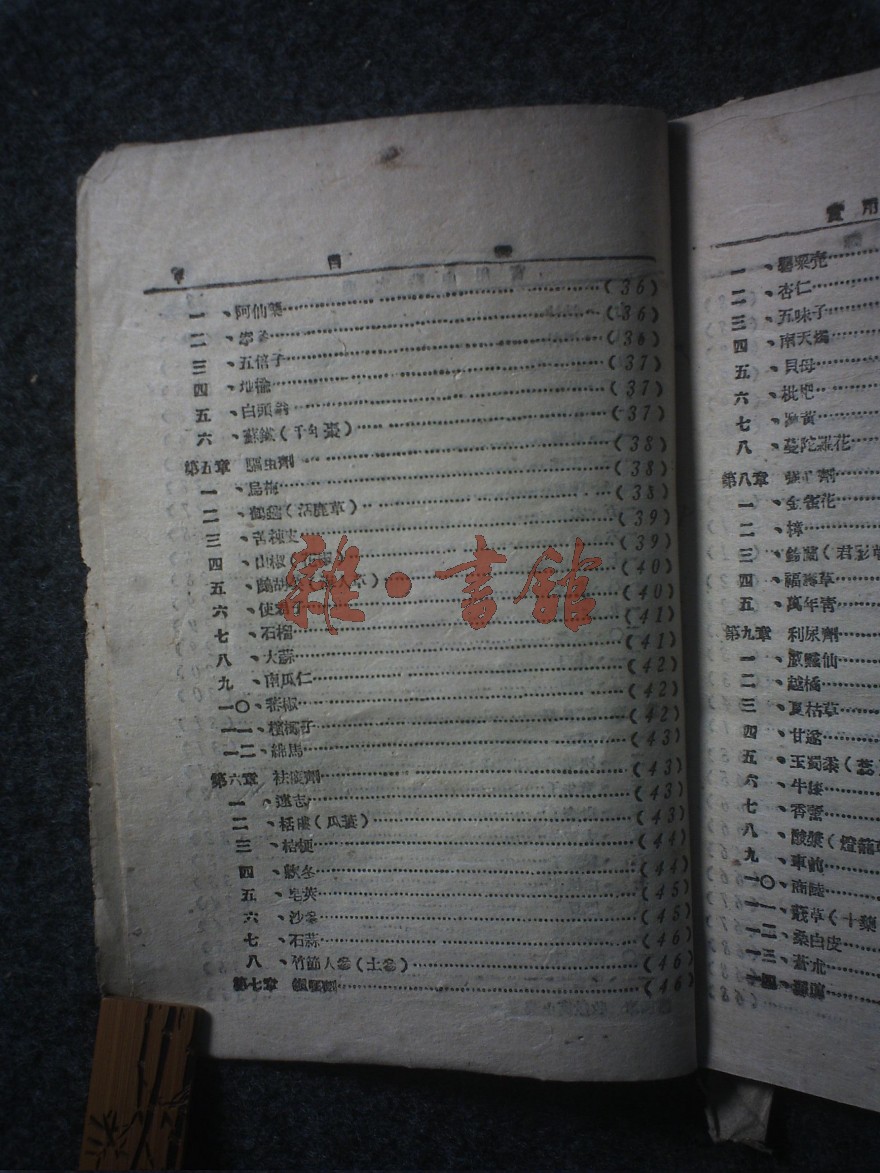 目
一、阿仙藥……(36)
二、……(36)
三、五倍子……(36)
四、地榆……(37)
五、白頭翁……(37)
六、蘇鐵(千年棗)……(37)
第五章 驅虫劑……(38)
一、烏梅……(38)
二、鶴虱(活鹿草)……(38)
三、苦楝皮……(39)
四、山椒……(39)
五、鷓胡菜(海人草)……(40)
六、使君子……(40)
七、石榴……(41)
八、大蒜……(41)
九、南瓜仁……(42)
一〇、蕃椒……(42)
一一、檳榔子……(42)
一二、綿馬……(43)
第六章 袪痰劑……(43)
一、遠志……(43)
二、栝蔞(瓜蔞)……(43)
三、桔梗……(44)
四、款冬……(44)
五、皂莢……(45)
六、沙參……(45)
七、石蒜……(46)
八、竹節人參(土參)……(46)
第七章 鎮咳劑……(46)
實用
一、罌粟壳
二、杏仁
三、五味子
四、南天燭
五、貝母
六、枇杷
七、麻黃
八、蔓陀羅花
第八章 強心劑
一、金雀花
二、樟
三、鈴蘭(君影草
四、福壽草
五、萬年青
第九章 利尿劑
一、威靈仙
二、越橘
三、夏枯草
四、甘遂
五、玉蜀黍(
六、牛膝
七、香薷
八、酸漿(燈籠草
九、車前
一〇、商陸
一一、蕺草(十藥
一二、桑白皮
一三、蒼朮
一四、
雜·書館